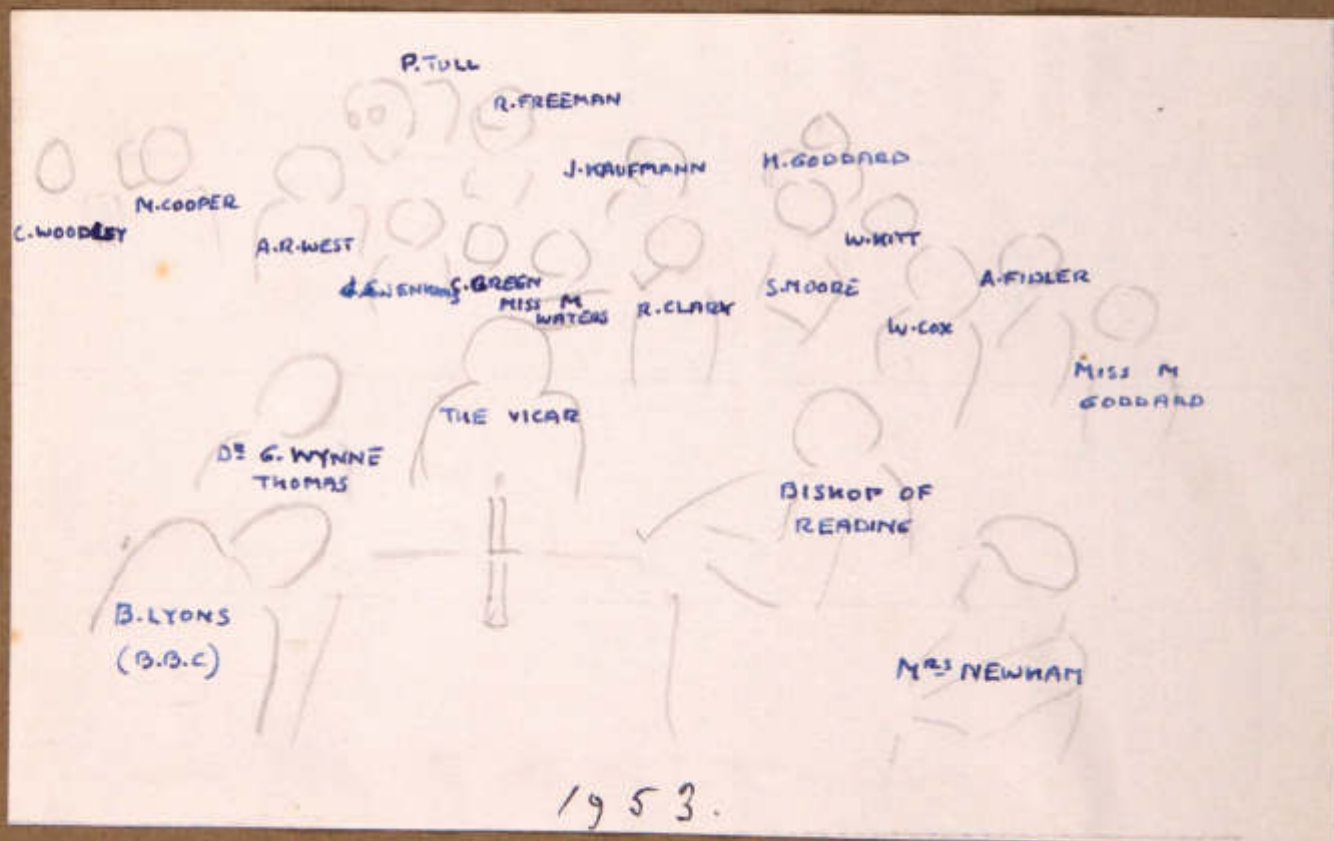 P. TULL
R. FREEMAN
J. KAUFMANN
H. GODDARD
M. COOPER
C. WOODLEY
A. R. WEST
W. KITT
G. GREEN
MISS M
WATERS
R. CLARK
S. MOORE
A. FIDLER
W. COX
MISS M
GODDARD
THE VICAR
DR G. WYNNE
THOMAS
BISHOP OF
READING
B. LYONS
(B.B.C)
MRS NEWHAM
1953.